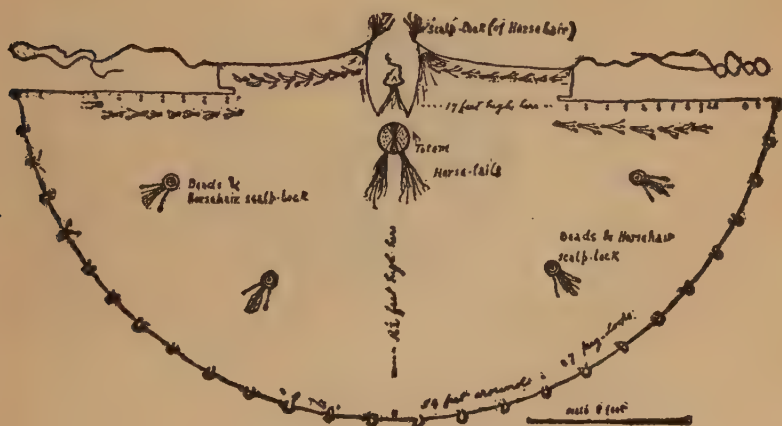 scalp-lock (of Horsehair)
17 feet high here
Totem
Horse-tails
Beads &
Horsehair scalp-lock
Beads & Horsehair
scalp-lock
feet high here
54 feet around
27 peg-loops